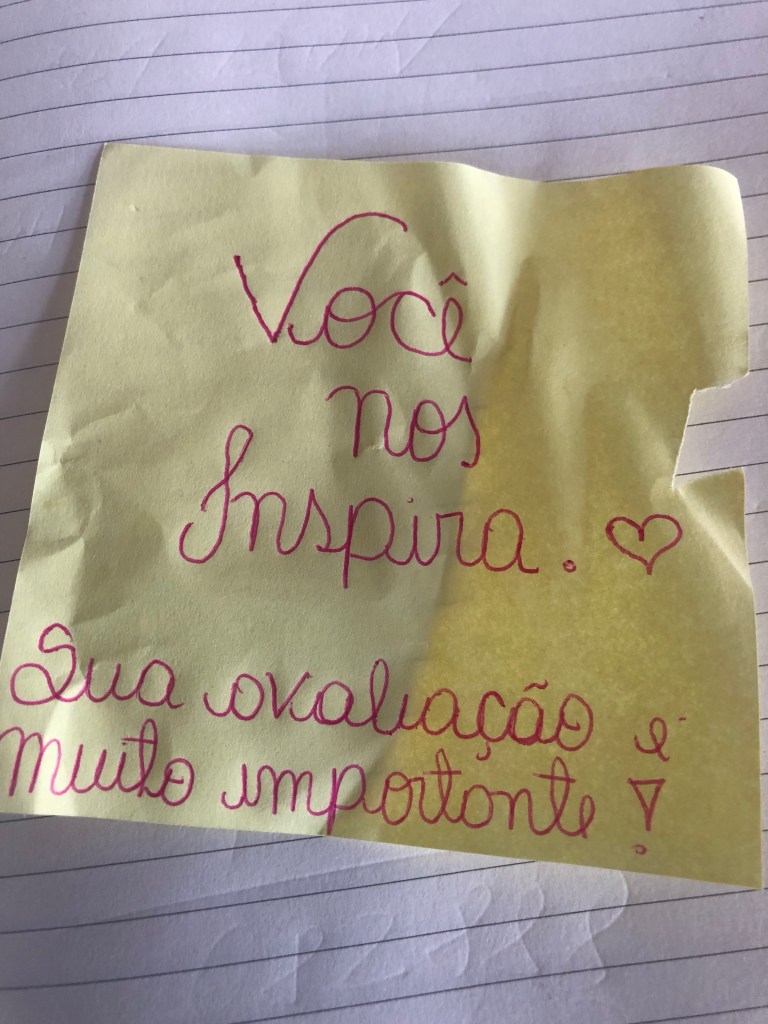 Você
nos
Inspira. ♡
Sua avaliação é
muito importante!